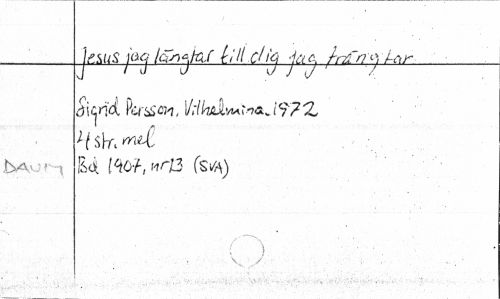 Jesus jag längtar till dig jag trängtar
Sigrid Persson, Vilhelmina. 1972
4 str. mel
DAUM Bd 1907, nr 13 (SVA)